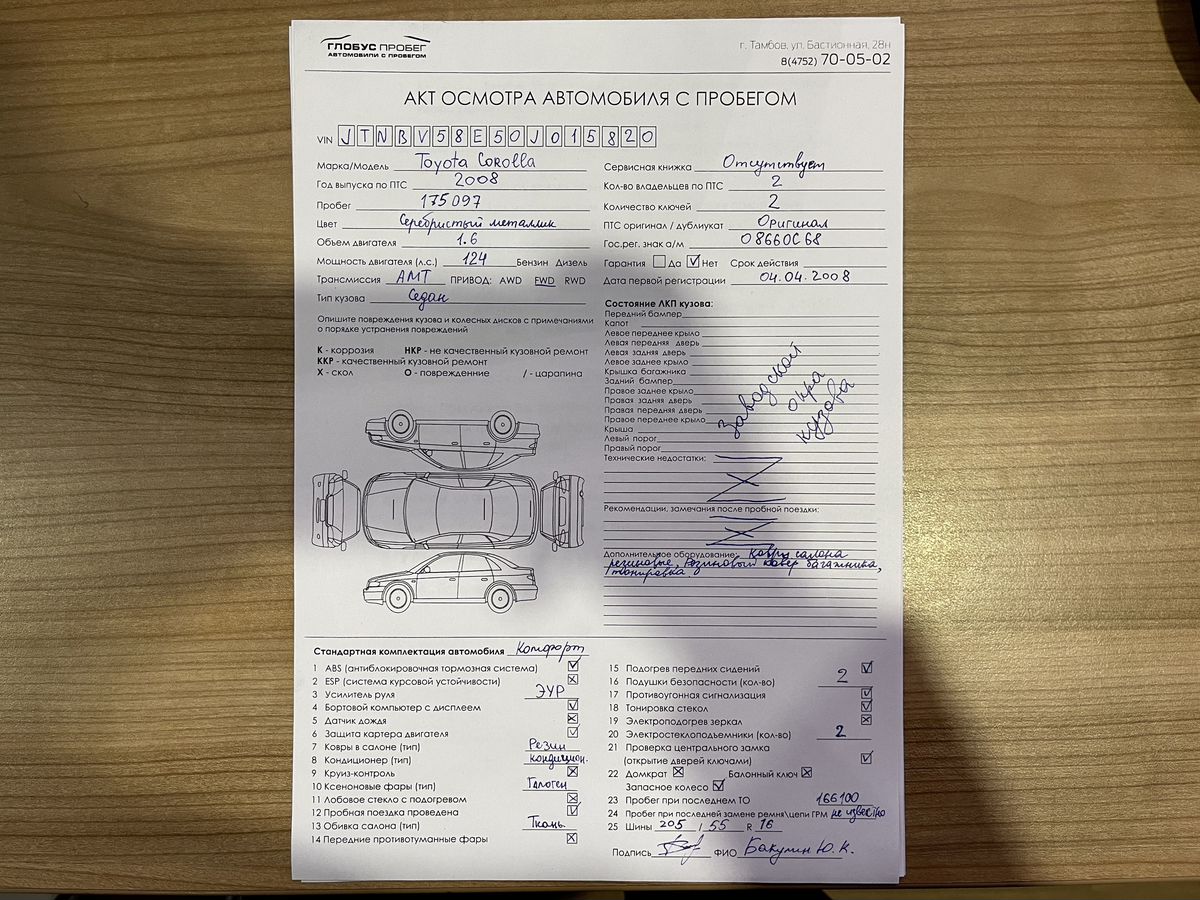 ГЛОБУС ПРОБЕГ
АВТОМОБИЛИ С ПРОБЕГОМ
г. Тамбов, ул. Бастионная, 28н
8(4752) 70-05-02
АКТ ОСМОТРА АВТОМОБИЛЯ С ПРОБЕГОМ
VIN JTNBV58E50J015820
Марка/Модель Toyota Corolla
Год выпуска по ПТС 2008
Пробег 175097
Цвет Серебристый металлик
Объем двигателя 1.6
Мощность двигателя (л.с.) 124 Бензин Дизель
Трансмиссия АМТ ПРИВОД: AWD FWD RWD
Тип кузова Седан
Сервисная книжка Отсутствует
Кол-во владельцев по ПТС 2
Количество ключей 2
ПТС оригинал / дубликат Оригинал
Гос.рег. знак а/м О866ОС68
Гарантия Да Нет Срок действия
Дата первой регистрации 04.04.2008
Опишите повреждения кузова и колесных дисков с примечаниями
о порядке устранения повреждений
К - коррозия НКР - не качественный кузовной ремонт
ККР - качественный кузовной ремонт
Х - скол О - повреждение / - царапина
Состояние ЛКП кузова:
Передний бампер
Капот
Левое переднее крыло
Левая передняя дверь
Левая задняя дверь
Левое заднее крыло
Крышка багажника
Задний бампер
Правое заднее крыло
Правая задняя дверь
Правая передняя дверь
Правое переднее крыло
Крыша
Левый порог
Правый порог
Заводской
окра
кузова
Технические недостатки:
Рекомендации, замечания после пробной поездки:
Дополнительное оборудование: ковры салона
резиновые, Резиновый ковер багажника,
тонировка
Стандартная комплектация автомобиля Комфорт
1 ABS (антиблокировочная тормозная система)
2 ESP (система курсовой устойчивости)
3 Усилитель руля ЭУР
4 Бортовой компьютер с дисплеем
5 Датчик дождя
6 Защита картера двигателя
7 Ковры в салоне (тип) Резин
8 Кондиционер (тип) кондицион.
9 Круиз-контроль
10 Ксеноновые фары (тип) Галоген
11 Лобовое стекло с подогревом
12 Пробная поездка проведена
13 Обивка салона (тип) Ткань.
14 Передние противотуманные фары
15 Подогрев передних сидений
16 Подушки безопасности (кол-во) 2
17 Противоугонная сигнализация
18 Тонировка стекол
19 Электроподогрев зеркал
20 Электростеклоподъемники (кол-во) 2
21 Проверка центрального замка
(открытие дверей ключами)
22 Домкрат Балонный ключ
Запасное колесо
23 Пробег при последнем ТО 166100
24 Пробег при последней замене ремня\цепи ГРМ не известно
25 Шины 205 / 55 R 16
Подпись ФИО Бакулин Ю.К.